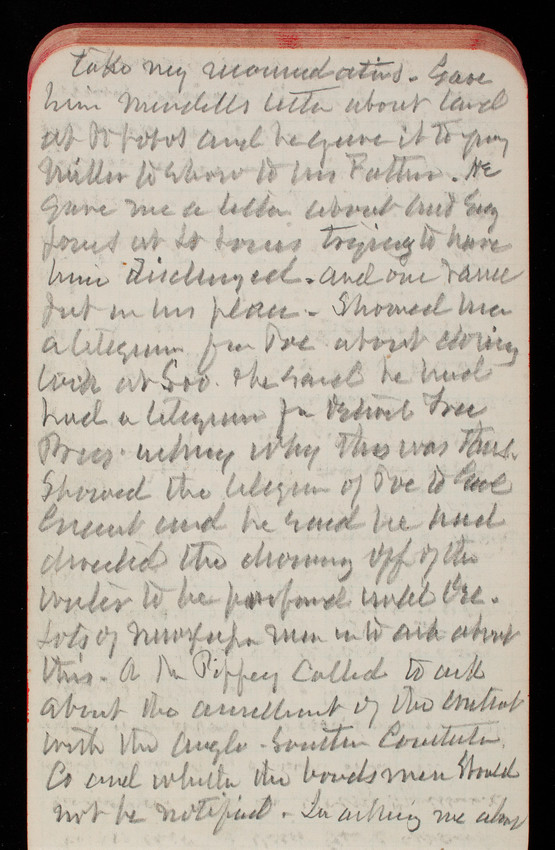 take my recommendations. Gave
him Mendells letter about land
at and he gave it to
Miller to show to his Father. He
gave me a letter about
Jones at St Louis trying to have
him discharged. and one
put in his place. Showed him
a telegram fm Poe about closing
lock at Soo. He said he had
had a telegram fm Detroit Free
Press asking why this was thus.
Showed the telegram of Poe to
and he said he had
directed the drawing off of the
water to be postponed until Dec.
Lots of newspaper men in to ask about
this. A Mr Pippey called to ask
about the annulment of the contract
with the Anglo-
Co and whether the bondsmen should
not be notified. In asking me about